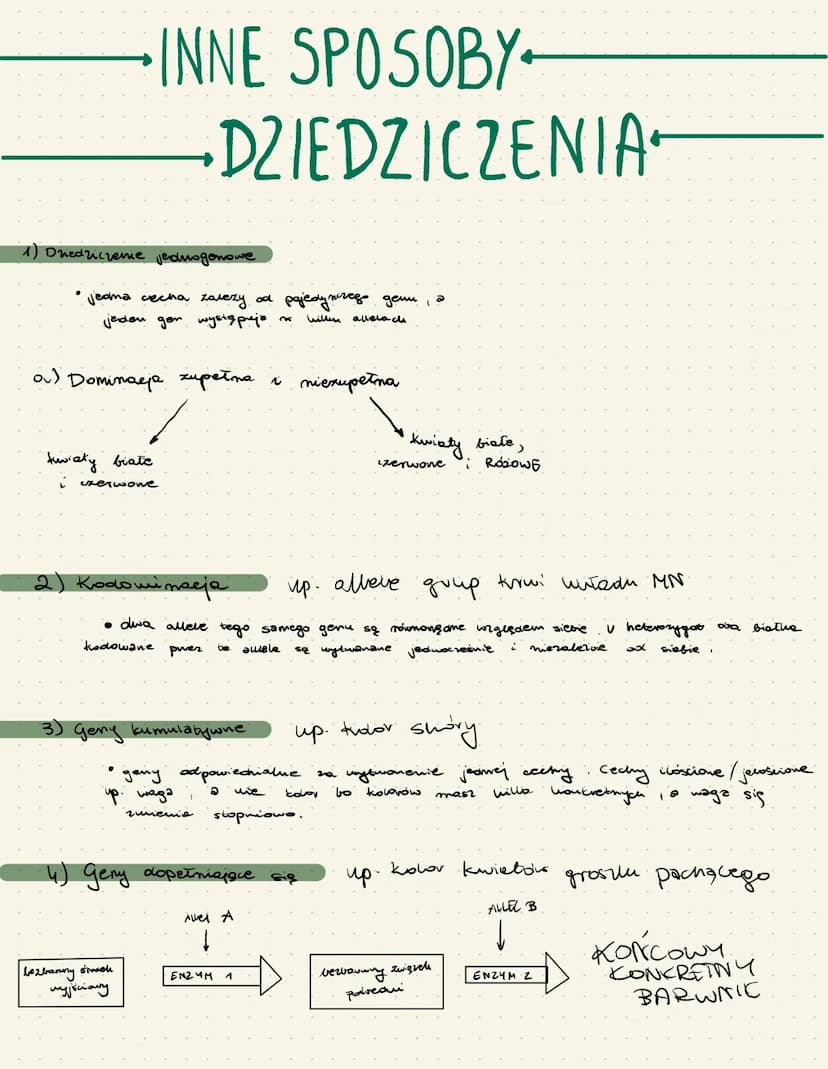 INNE SPOSOBY
DZIEDZICZENIA
1) Dziedziczenie jednogenowe
• jedna cecha zależy od pojedynczego genu, a
jeden gen występuje w kilku allelach
a) Dominacja zupełna i niezupełna
kwiaty białe
i czerwone
kwiaty białe,
czerwone i RÓŻOWE
2) Kodominacja np. allele grup krwi układu MN
• dwa allele tego samego genu są równorzędne względem siebie. U heterozygot oba białka
kodowane przez te allele są wytwarzane jednocześnie i niezależnie od siebie.
3) Geny kumulatywne np. kolor skóry
• geny odpowiedzialne za wytworzenie jednej cechy. Cechy ilościowe / jakościowe
np. waga, a nie kolor bo kolorów masz kilka konkretnych, a waga się
zmienia stopniowo.
4) Geny dopełniające się np. kolor kwiatów groszku pachącego
ALLEL A
ALLEL B
bezbarwny
wyjściowy
ENZYM 1
bezbarwny związek
pośredni
ENZYM 2
KOŃCOWY
KONKRETNY
BARWNIK